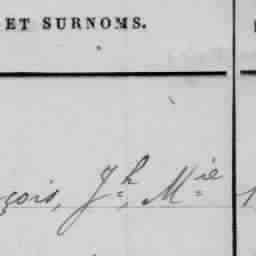 ET SURNOMS.
çois, Jh, Mie